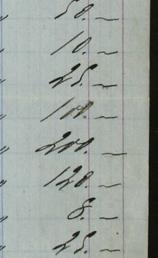 50. —
10. —
25. —
100. —
200. —
128. —
8 —
25. —